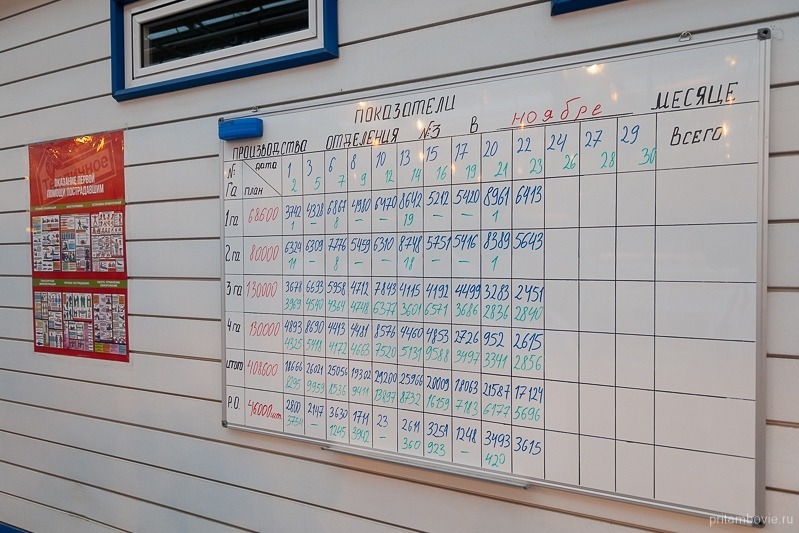 ПОКАЗАТЕЛИ
ПРОИЗВОДСТВА ОТДЕЛЕНИЯ №3 В НОЯБРЕ МЕСЯЦЕ
№ Га дата план 1 2 3 5 6 7 8 9 10 12 13 14 15 16 17 19 20 21 22 23 24 26 27 28 29 30 Всего
1 га 68600 3742 4328 6861 4980 6470 8642 5212 5420 8961 6413
1 – 8 – – 19 – – 1
2 га 80000 6324 6309 7776 5459 6310 8748 5751 5416 8389 5643
11 – 8 – – 18 – – 1
3 га 130000 3678 6693 5958 4712 7843 4115 4192 4499 3283 2451
3969 4540 4364 4748 6377 3601 6571 3686 2836 2840
4 га 130000 4893 8690 4413 4481 8576 4460 4853 2726 952 2615
4325 5418 4172 4663 7520 5131 9588 3497 3341 2856
итого 408600 18666 26021 25056 19302 29200 25966 20009 18063 21587 17124
8295 9959 8536 9411 13897 8732 16159 7183 6177 5696
Р.О. 46000 шт. 2800 2147 3630 1711 23 2611 3251 1248 3493 3615
3751 – 1245 3942 – 360 923 – 420
ОКАЗАНИЕ ПЕРВОЙ
ПОМОЩИ ПОСТРАДАВШИМ
pritambovie.ru